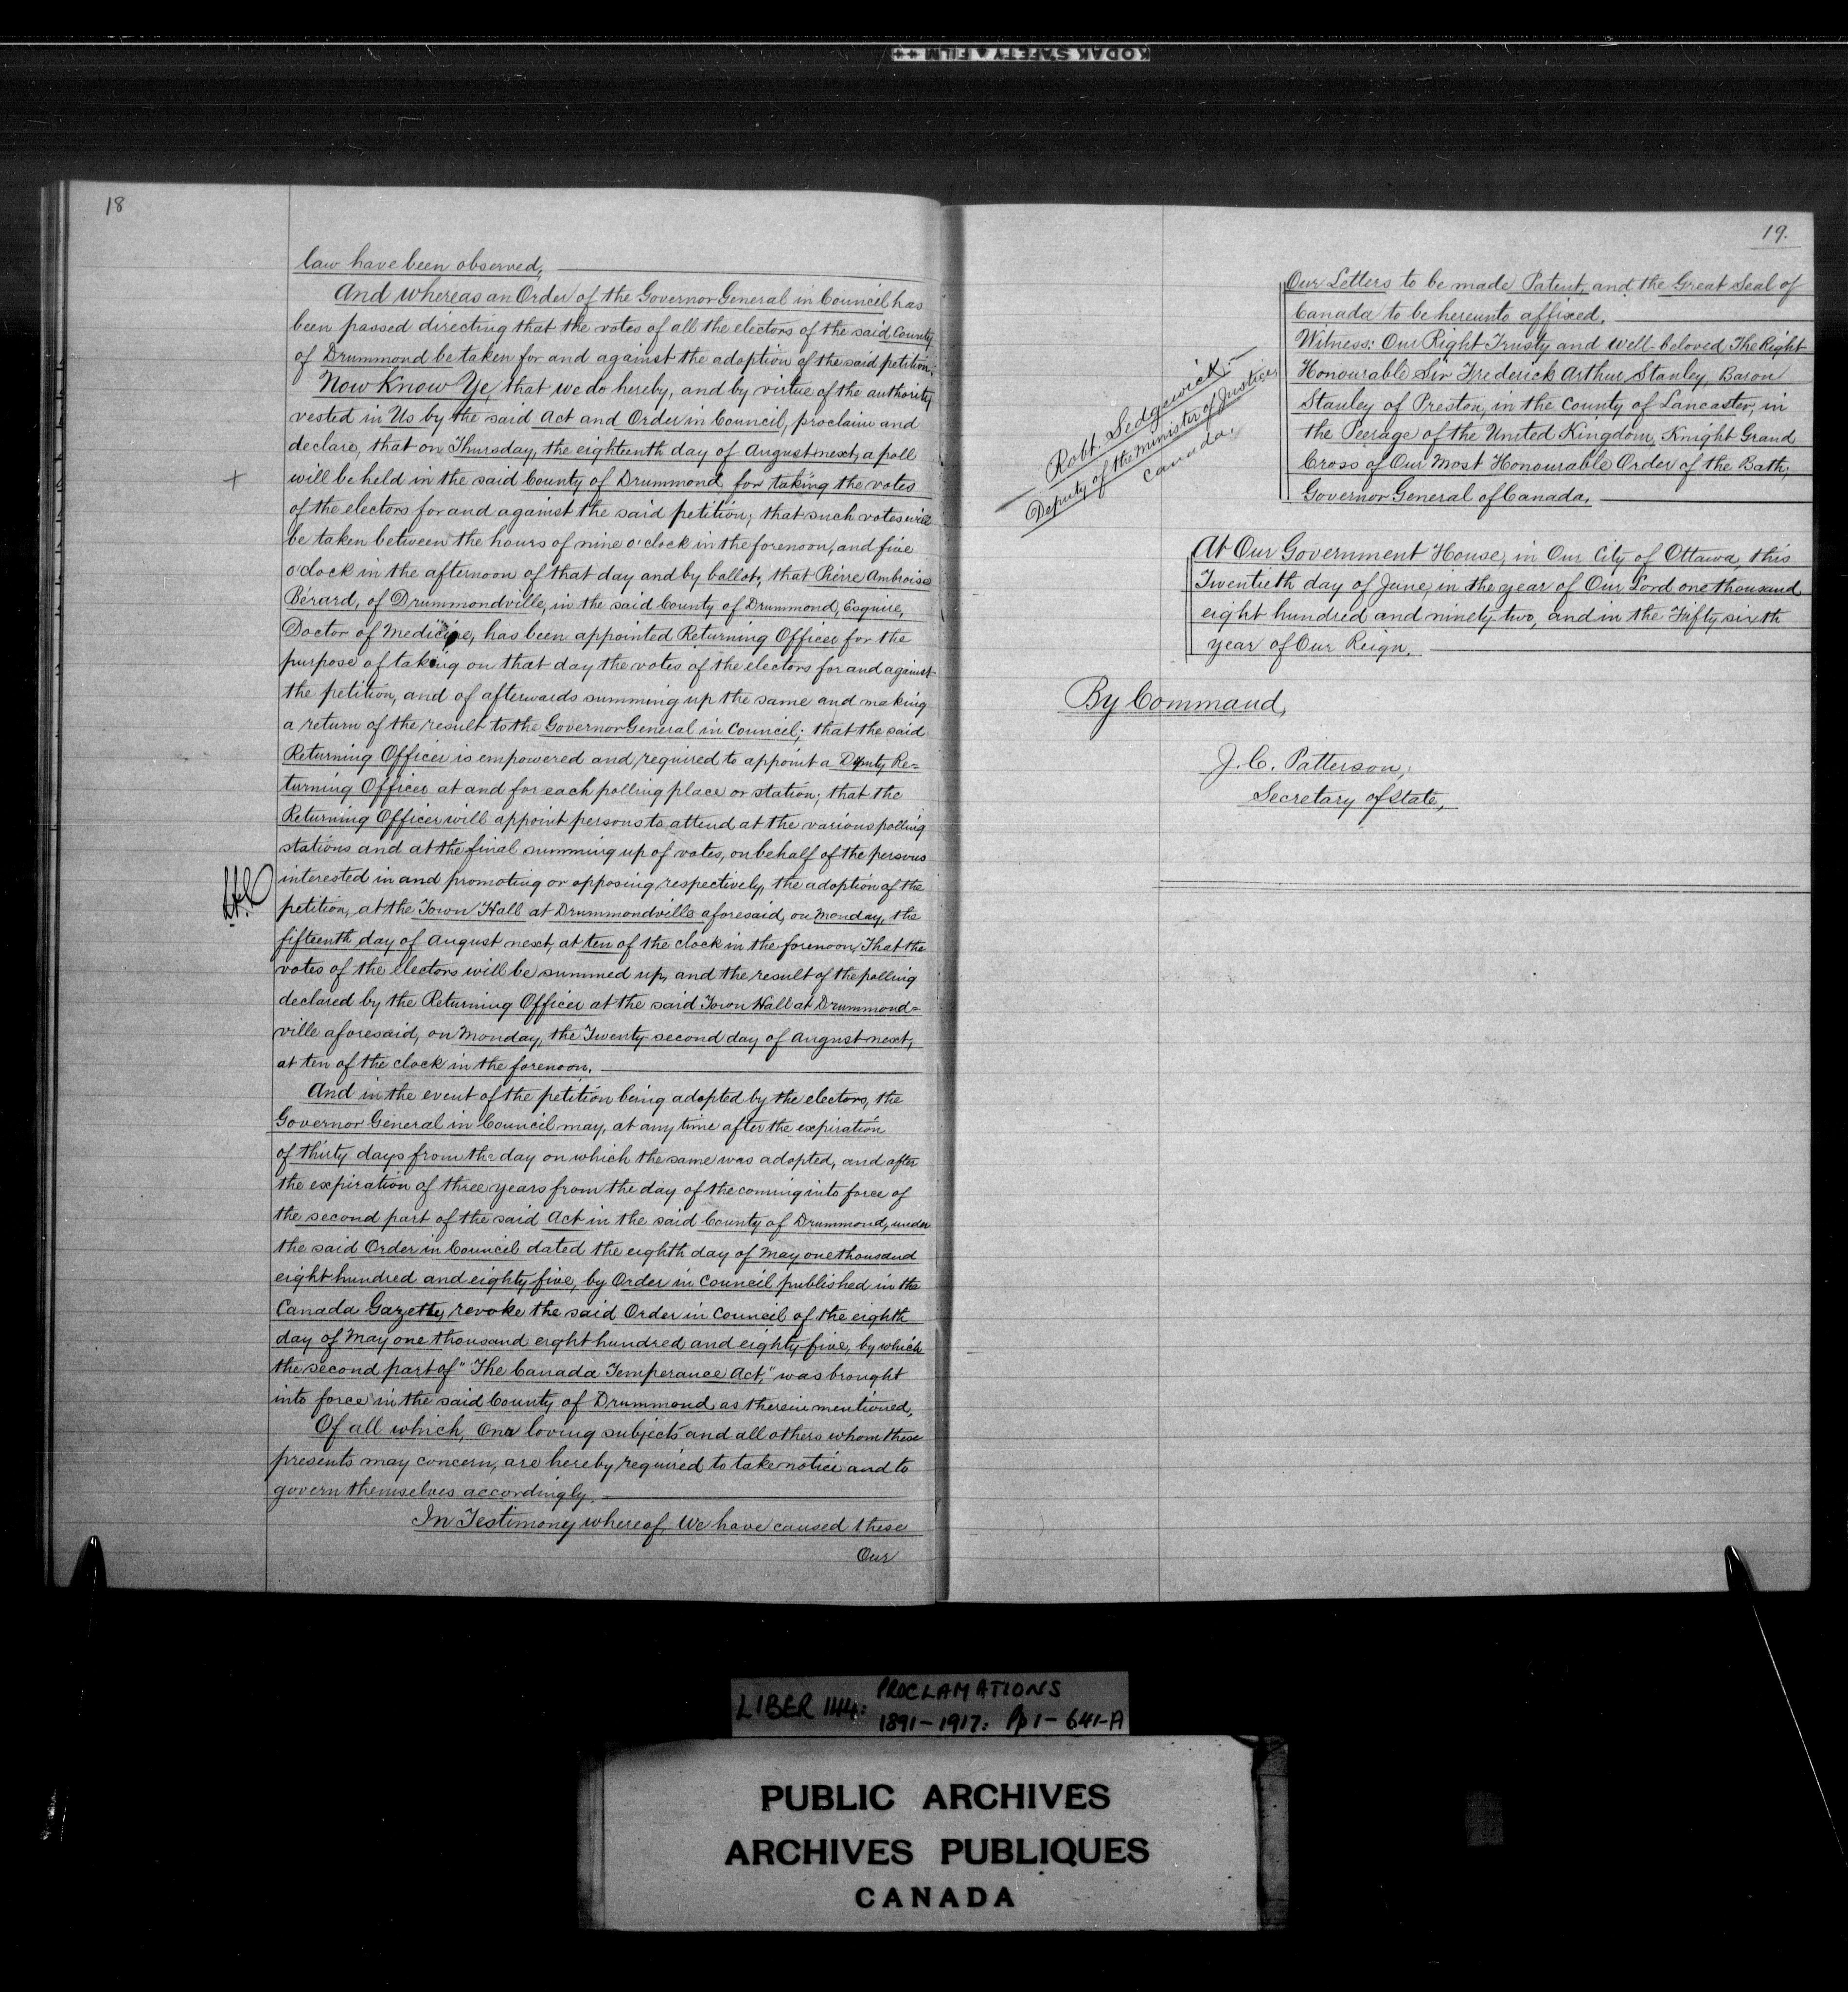 KODAK SAFETY ▲ FILM ++
18
law have been observed,
And whereas an Order of the Governor General in Council, has
been passed directing that the votes of all the electors of the said County
of Drummond be taken for and against the adoption of the said petition;
Now Know Ye, that we do hereby, and by virtue of the authority
vested in Us by the said Act and Order in Council, proclaim and
declare, that on Thursday, the eighteenth day of August next, a poll
+
will be held in the said County of Drummond for taking the votes
of the electors for and against the said petition; that such votes will
be taken between the hours of nine o'clock in the forenoon, and five
o'clock in the afternoon of that day and by ballot, that Pierre Ambroise
Bérard, of Drummondville, in the said County of Drummond, Esquire,
Doctor of Medicine, has been appointed Returning Officer for the
purpose of taking on that day the votes of the electors for and against
the petition, and of afterwards summing up the same and making
a return of the result to the Governor General in Council; that the said
Returning Officer is empowered and required to appoint a Deputy Re=
turning Officer at and for each polling place or station; that the
Returning Officer will appoint persons to attend at the various polling
stations and at the final summing up of votes, on behalf of the persons
interested in and promoting or opposing respectively, the adoption of the
petition, at the Town Hall at Drummondville aforesaid, on Monday, the
fifteenth day of August next, at ten of the clock in the forenoon, That the
votes of the electors will be summed up, and the result of the polling
declared by the Returning Officer at the said Town Hall at Drummond=
ville aforesaid, on Monday, the Twenty second day of August next,
at ten of the clock in the forenoon.
And in the event of the petition being adopted by the electors, the
Governor General in Council may, at any time after the expiration
of thirty days from the day on which the same was adopted, and after
the expiration of three years from the day of the coming into force of
the second part of the said Act in the said County of Drummond, under
the said Order in Council dated the eighth day of May one thousand
eight hundred and eighty five, by Order in Council published in the
Canada Gazette, revoke the said Order in Council of the eighth
day of May one thousand eight hundred and eighty five, by which
the second part of "The Canada Temperance Act," was brought
into force in the said County of Drummond as therein mentioned,
Of all which, Our loving subjects and all others whom these
presents may concern, are hereby required to take notice and to
govern themselves accordingly.
In Testimony whereof, We have caused these
Our
19.
Our Letters to be made Patent, and the Great Seal of
Canada to be hereunto affixed.
Witness: Our Right Trusty and well-beloved The Right
Honourable Sir Frederick Arthur Stanley, Baron
Stanley of Preston, in the County of Lancaster, in
the Peerage of the United Kingdom, Knight Grand
Cross of Our Most Honourable Order of the Bath,
Governor General of Canada,
Robt. Sedgewick,
Deputy of the Minister of Justice,
Canada.
At Our Government House, in Our City of Ottawa, this
Twentieth day of June, in the year of Our Lord one thousand
eight hundred and ninety-two, and in the Fifty sixth
year of Our Reign.
By Command,
J. C. Patterson,
Secretary of State,
LIBER 144: PROCLAMATIONS
1891-1917: Pp 1-641-A
PUBLIC ARCHIVES
ARCHIVES PUBLIQUES
CANADA